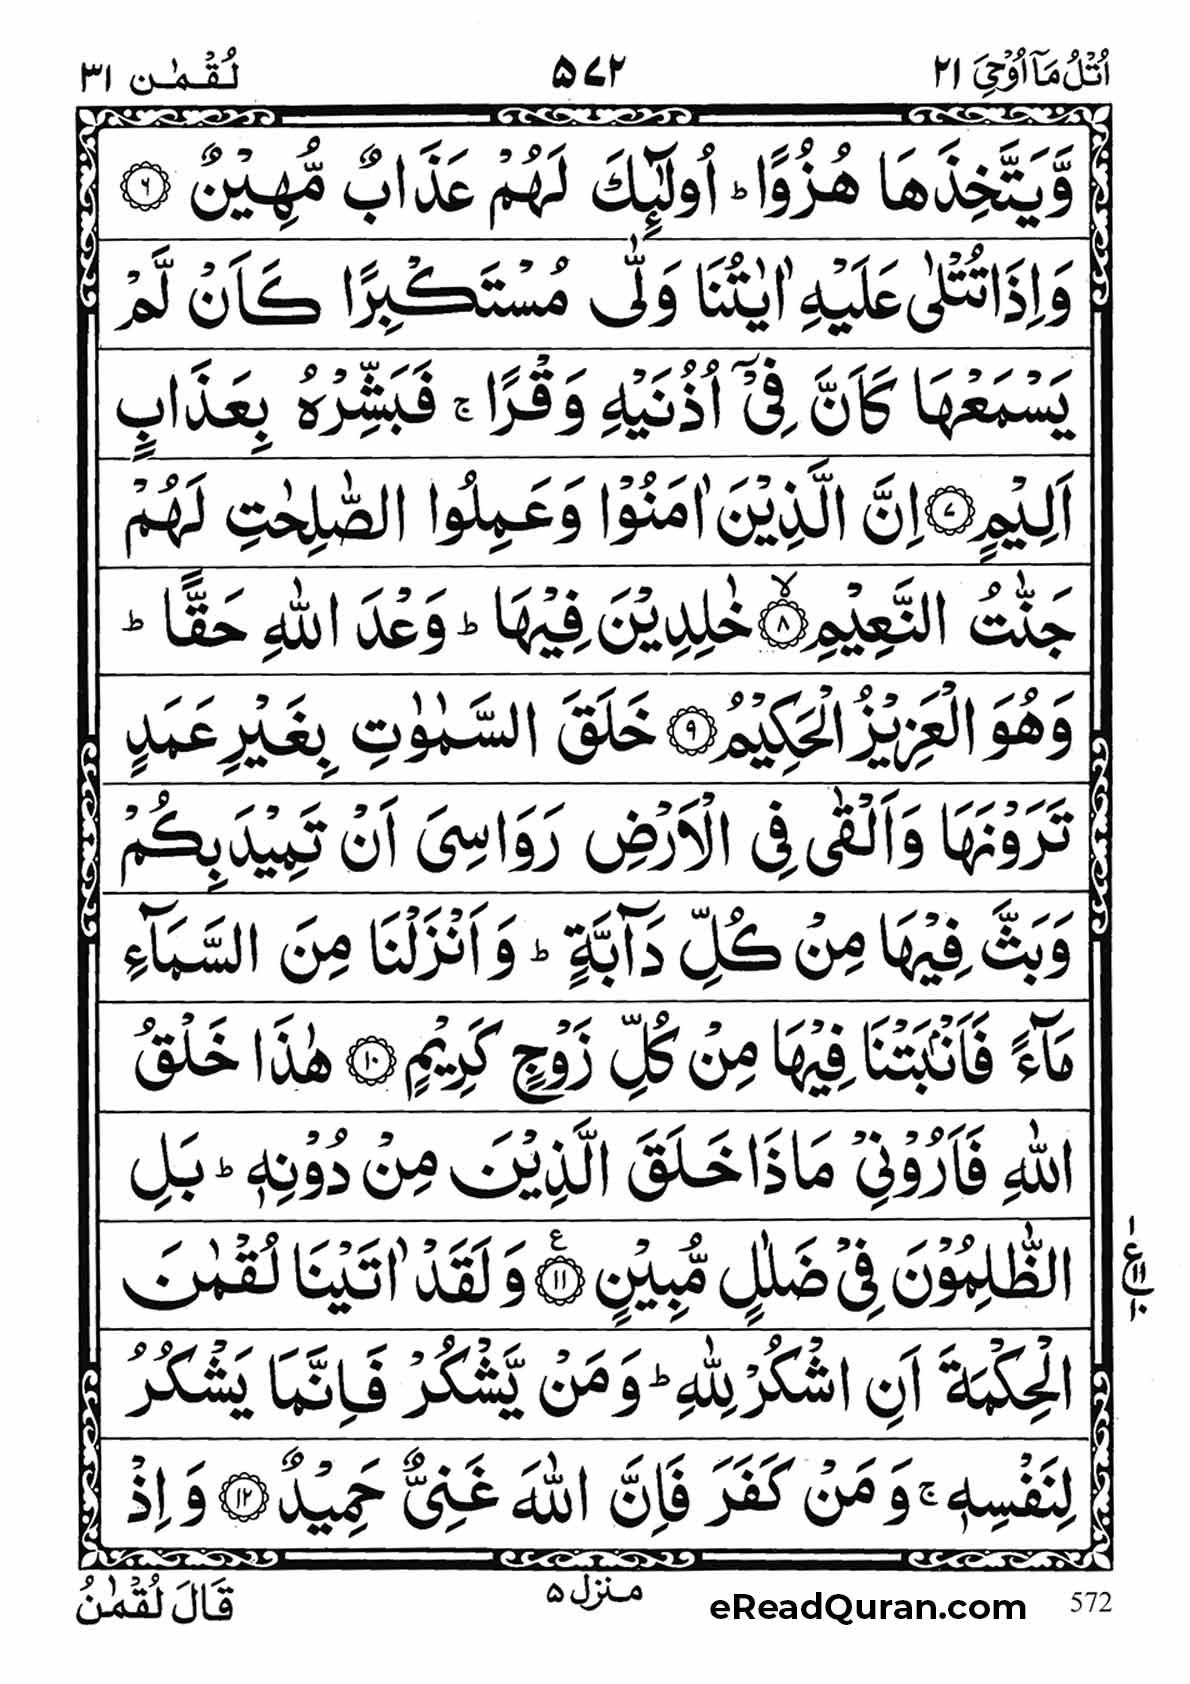 اُتْلُ مَاۤ اُوْحِیَ ۲۱
۵۷۲
لُقْمٰن ۳۱
وَّیَتَّخِذَهَا هُزُوًا ؕ اُولٰٓىِٕكَ لَهُمْ عَذَابٌ مُّهِیْنٌ ۶
وَاِذَا تُتْلٰی عَلَیْهِ اٰیٰتُنَا وَلّٰی مُسْتَكْبِرًا كَاَنْ لَّمْ
یَسْمَعْهَا كَاَنَّ فِیْۤ اُذُنَیْهِ وَقْرًا ۚ فَبَشِّرْهُ بِعَذَابٍ
اَلِیْمٍ ۷ اِنَّ الَّذِیْنَ اٰمَنُوْا وَعَمِلُوا الصّٰلِحٰتِ لَهُمْ
جَنّٰتُ النَّعِیْمِ ۸ ۙ خٰلِدِیْنَ فِیْهَا ؕ وَعْدَ اللّٰهِ حَقًّا ؕ
وَهُوَ الْعَزِیْزُ الْحَكِیْمُ ۹ خَلَقَ السَّمٰوٰتِ بِغَیْرِ عَمَدٍ
تَرَوْنَهَا وَاَلْقٰی فِی الْاَرْضِ رَوَاسِیَ اَنْ تَمِیْدَ بِكُمْ
وَبَثَّ فِیْهَا مِنْ كُلِّ دَآبَّةٍ ؕ وَاَنْزَلْنَا مِنَ السَّمَآءِ
مَآءً فَاَنْۢبَتْنَا فِیْهَا مِنْ كُلِّ زَوْجٍ كَرِیْمٍ ۱۰ هٰذَا خَلْقُ
اللّٰهِ فَاَرُوْنِیْ مَاذَا خَلَقَ الَّذِیْنَ مِنْ دُوْنِهٖ ؕ بَلِ
الظّٰلِمُوْنَ فِیْ ضَلٰلٍ مُّبِیْنٍ ۱۱ ع وَلَقَدْ اٰتَیْنَا لُقْمٰنَ
ع
۱۱
۱۰
الْحِكْمَةَ اَنِ اشْكُرْ لِلّٰهِ ؕ وَمَنْ یَّشْكُرْ فَاِنَّمَا یَشْكُرُ
لِنَفْسِهٖ ۚ وَمَنْ كَفَرَ فَاِنَّ اللّٰهَ غَنِیٌّ حَمِیْدٌ ۱۲ وَاِذْ
قَالَ لُقْمٰنُ
منزل ۵
eReadQuran.com
572